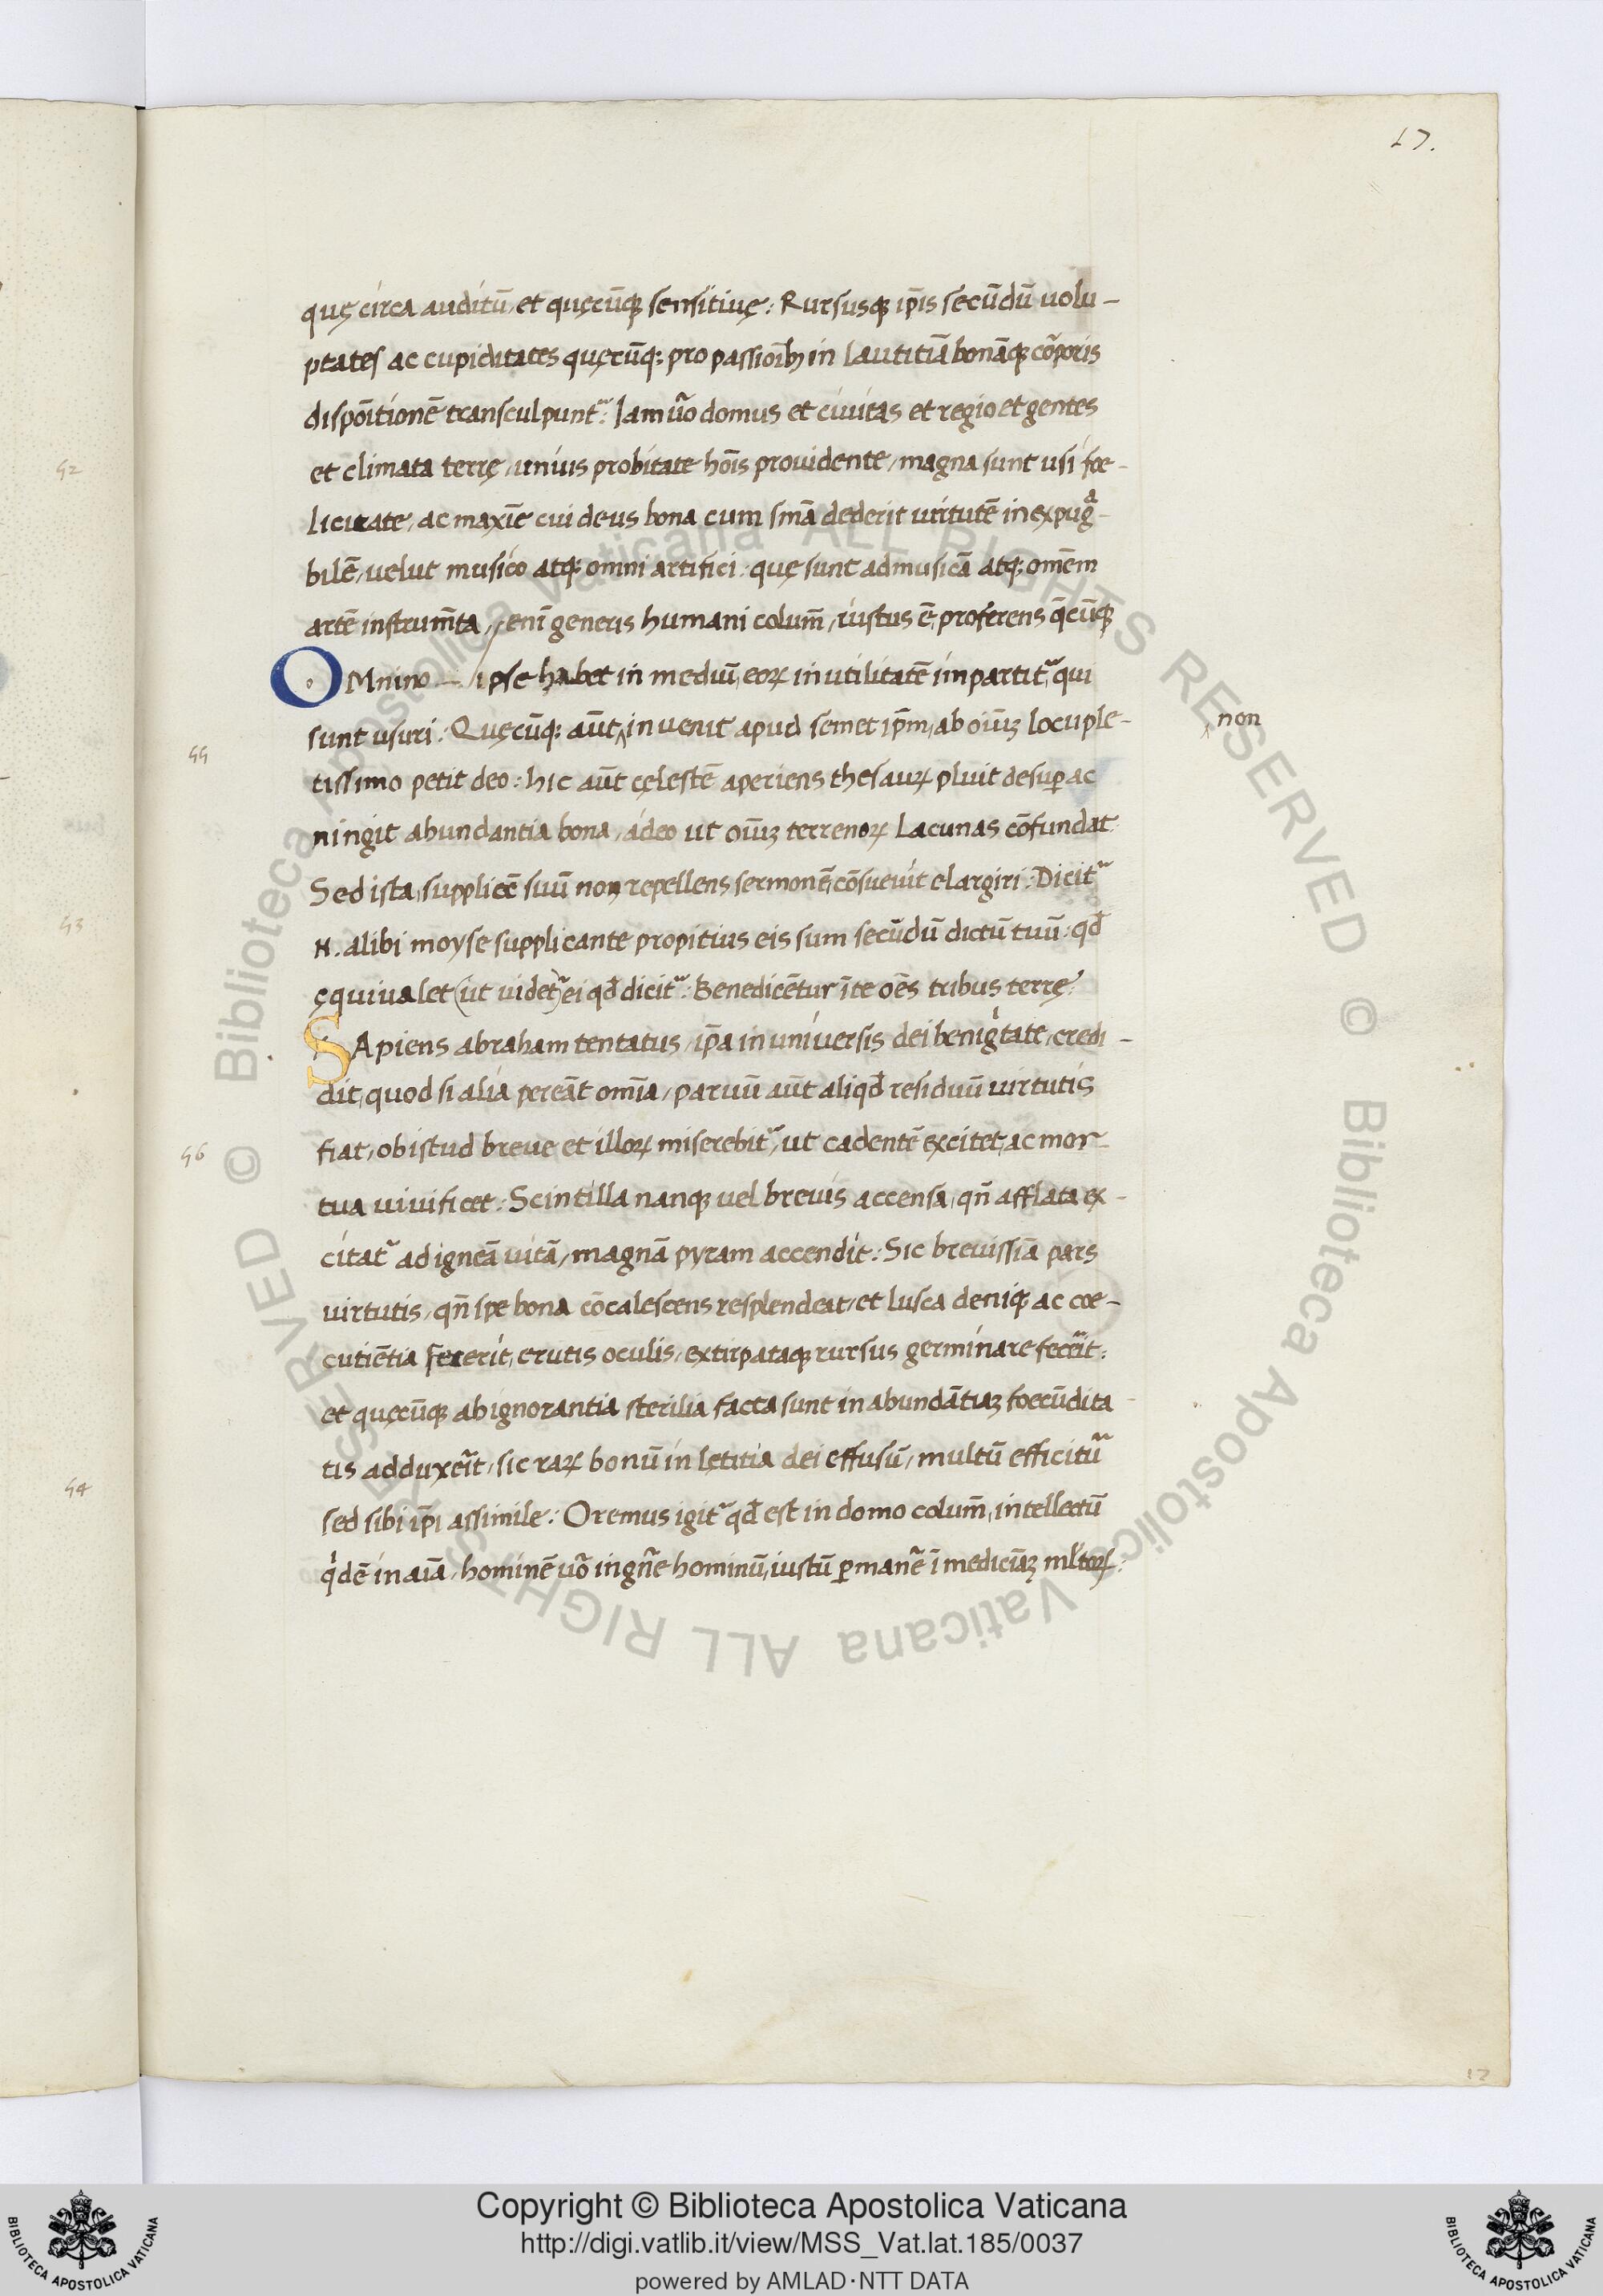 17.
quę circa auditū, et quęcūq; sensitiuę: Rursusq; ip̄is secūdū uolu-
ptates ac cupiditates quęcūq; pro passioībȝ in lautitiā bonāq; cōrporis
dispoītionē transculpunt᷑: Iam u͞o domus et ciuitas et regio et gentes
et climata terrę, unius probitate ho͞is prouidente, magna sunt usi foe-
licitate, ac maxī͞e cui deus bona cum sm̄a dederit uirtutē inexpug͞a-
bilē, uelut musico atq; omni artifici: quę sunt ad musicā atq; om̄em
artē instrum̄ta, / enī generis humani colum̄, iustus ē, proferens q͞cūq;
OMnino — / ipse habet in mediū, eoꝝ in utilitatē impartit᷑, qui
sunt usuri: Quęcūq; aūt ‸ inuenit apud semet ip̄m, ab oīuȝ locuple-
non
tissimo petit deo: hic aūt cęlestē aperiens thesauꝝ pluit desuꝑ ac
ningit abundantia bona, adeo ut oīuȝ terrenoꝝ lacunas cōfundat:
Sed ista, supplicē suū non repellens sermonē, cōsueuit elargiri: Dicit᷑
N. alibi moyse supplicante propitius eis sum secūdū dictū tuū: qđ
ęquiualet (ut uidet᷑) ei qđ dicit᷑: Benedicētur ī te oēs tribus terrę:
SApiens abraham tentatus, ip̄a in uniuersis dei benigͥtate, credi-
dit, quod si alia pereāt om̄ia, paruū aūt aliqđ residuū uirtutis
fiat, ob istud breue et illoꝝ miserebit᷑, ut cadentē excitet, ac mor-
tua uiuificet: Scintilla nanq; uel breuis accensa, qn̄ afflata ex-
citat᷑ ad igneā uitā, magnā pyram accendit: Sic breuissīa pars
uirtutis, qn̄ spe bona cōcalescens resplendeat, et lusca deniq; ac coe-
cutiētia fecerit, erutis oculis, extirpataq; rursus germinare fecēit:
et quęcūq; ab ignorantia sterilia facta sunt in abundātiaȝ foecūdita
tis adduxēit, sic raꝝ bonū in lętitia dei effusū, multū efficitu᷑
sed sibi ip̄i assimile: Oremus igit᷑ qđ est in domo colum̄, intellectū
qͥdē in aīa, hominē u͞o in gn̄e hominū, iustū ꝑmanē ī mediciāȝ ml̄toꝝ:
55
56
52
53
54
12
Copyright © Biblioteca Apostolica Vaticana
http://digi.vatlib.it/view/MSS_Vat.lat.185/0037
powered by AMLAD·NTT DATA
BIBLIOTECA APOSTOLICA VATICANA
BIBLIOTECA APOSTOLICA VATICANA
© Biblioteca Apostolica Vaticana ALL RIGHTS RESERVED © Biblioteca Apostolica Vaticana ALL RIGHTS RESERVED